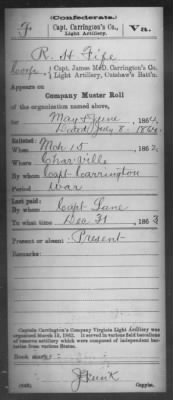 (Confederate.)
F. Capt. Carrington's Co., Light Artillery. Va.
R. H. Fife
Corp., Capt. James McD. Carrington's Co.,
Light Artillery, Cutshaw's Batt'n.
Appears on
Company Muster Roll
of the organization named above,
for May & June 1864,
Dated July 8, 1864.
Enlisted:
When Mch 15, 1862.
Where Char Ville
By whom Capt. Carrington
Period War
Last paid:
By whom Capt. Lane
To what time Dec 31, 1863.
Present or absent: Present
Remarks:
Captain Carrington's Company Virginia Light Artillery was
organized March 13, 1862. It served in various field battalions
of reserve artillery which were composed of independent bat-
teries from various States.
Book mark:
(642)
Copyist.